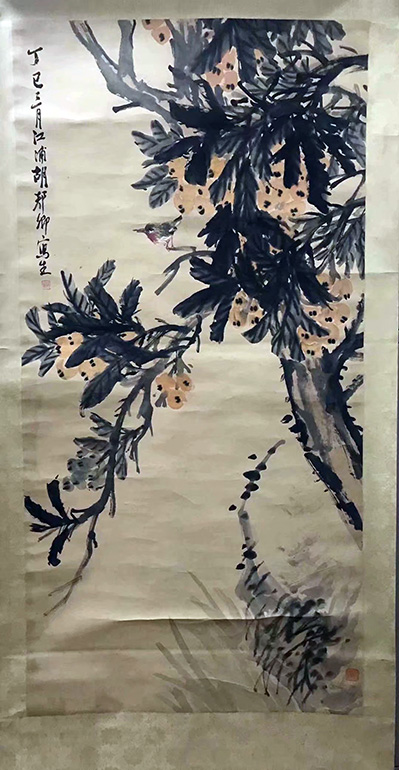 丁巳三月江浦胡舒卿寫生